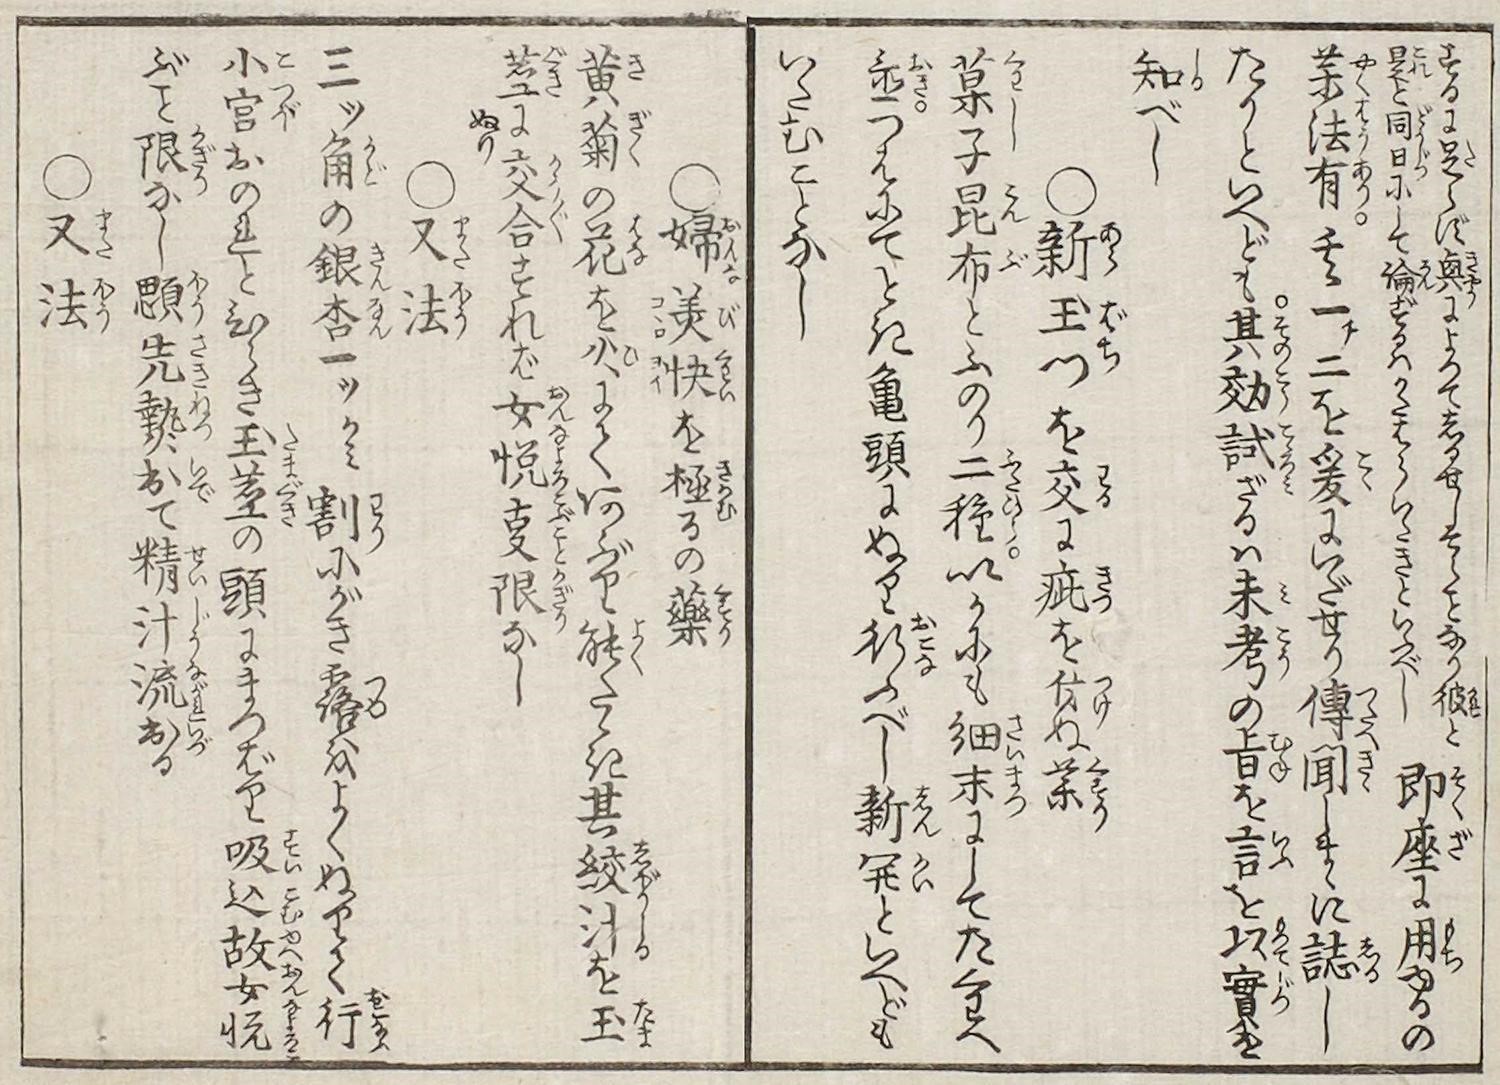 するに足らず興によつて為せしすさみとなり彼と
是と同日にして論ずるハかたはらいたきといふべし 即座に用ゆるの
薬法有 其一 二を爰にいだせり傳聞しまゝに誌し
たりといへども其効試ざるハ未考の旨を言を以實を
知べし
○新玉門を交に疵を付ぬ薬
菓子昆布とふのり二種いかにも細末にしてたくはへ
置つねにてとき亀頭にぬり行ふべし新開といへども
いたむことなし
○婦美快を極るの薬
黄菊の花を火にてあぶり能たゝき其絞汁を玉
茎に交合すれば女悦支限なし
ぬり
○又法
三ッ角の銀杏一ッかミ割にがき露をよくぬりて行
小宮おのれとひらき玉茎の頭にまつはり吸込故女悦
ぶと限なし顋先熱出て精汁流出る
○又法